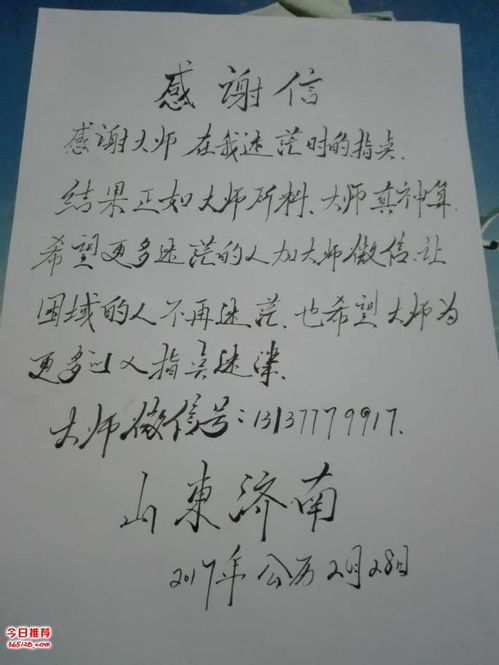 感谢信
感谢大师在我迷茫时的指点.
结果正如大师所料、大师真神算.
希望更多迷茫的人加大师微信.让
困域的人不再迷茫、也希望大师为
更多的人指点迷津、
大师微信号:13137779917.
山東济南
2017年公历2月28日
今日推荐
365128.com